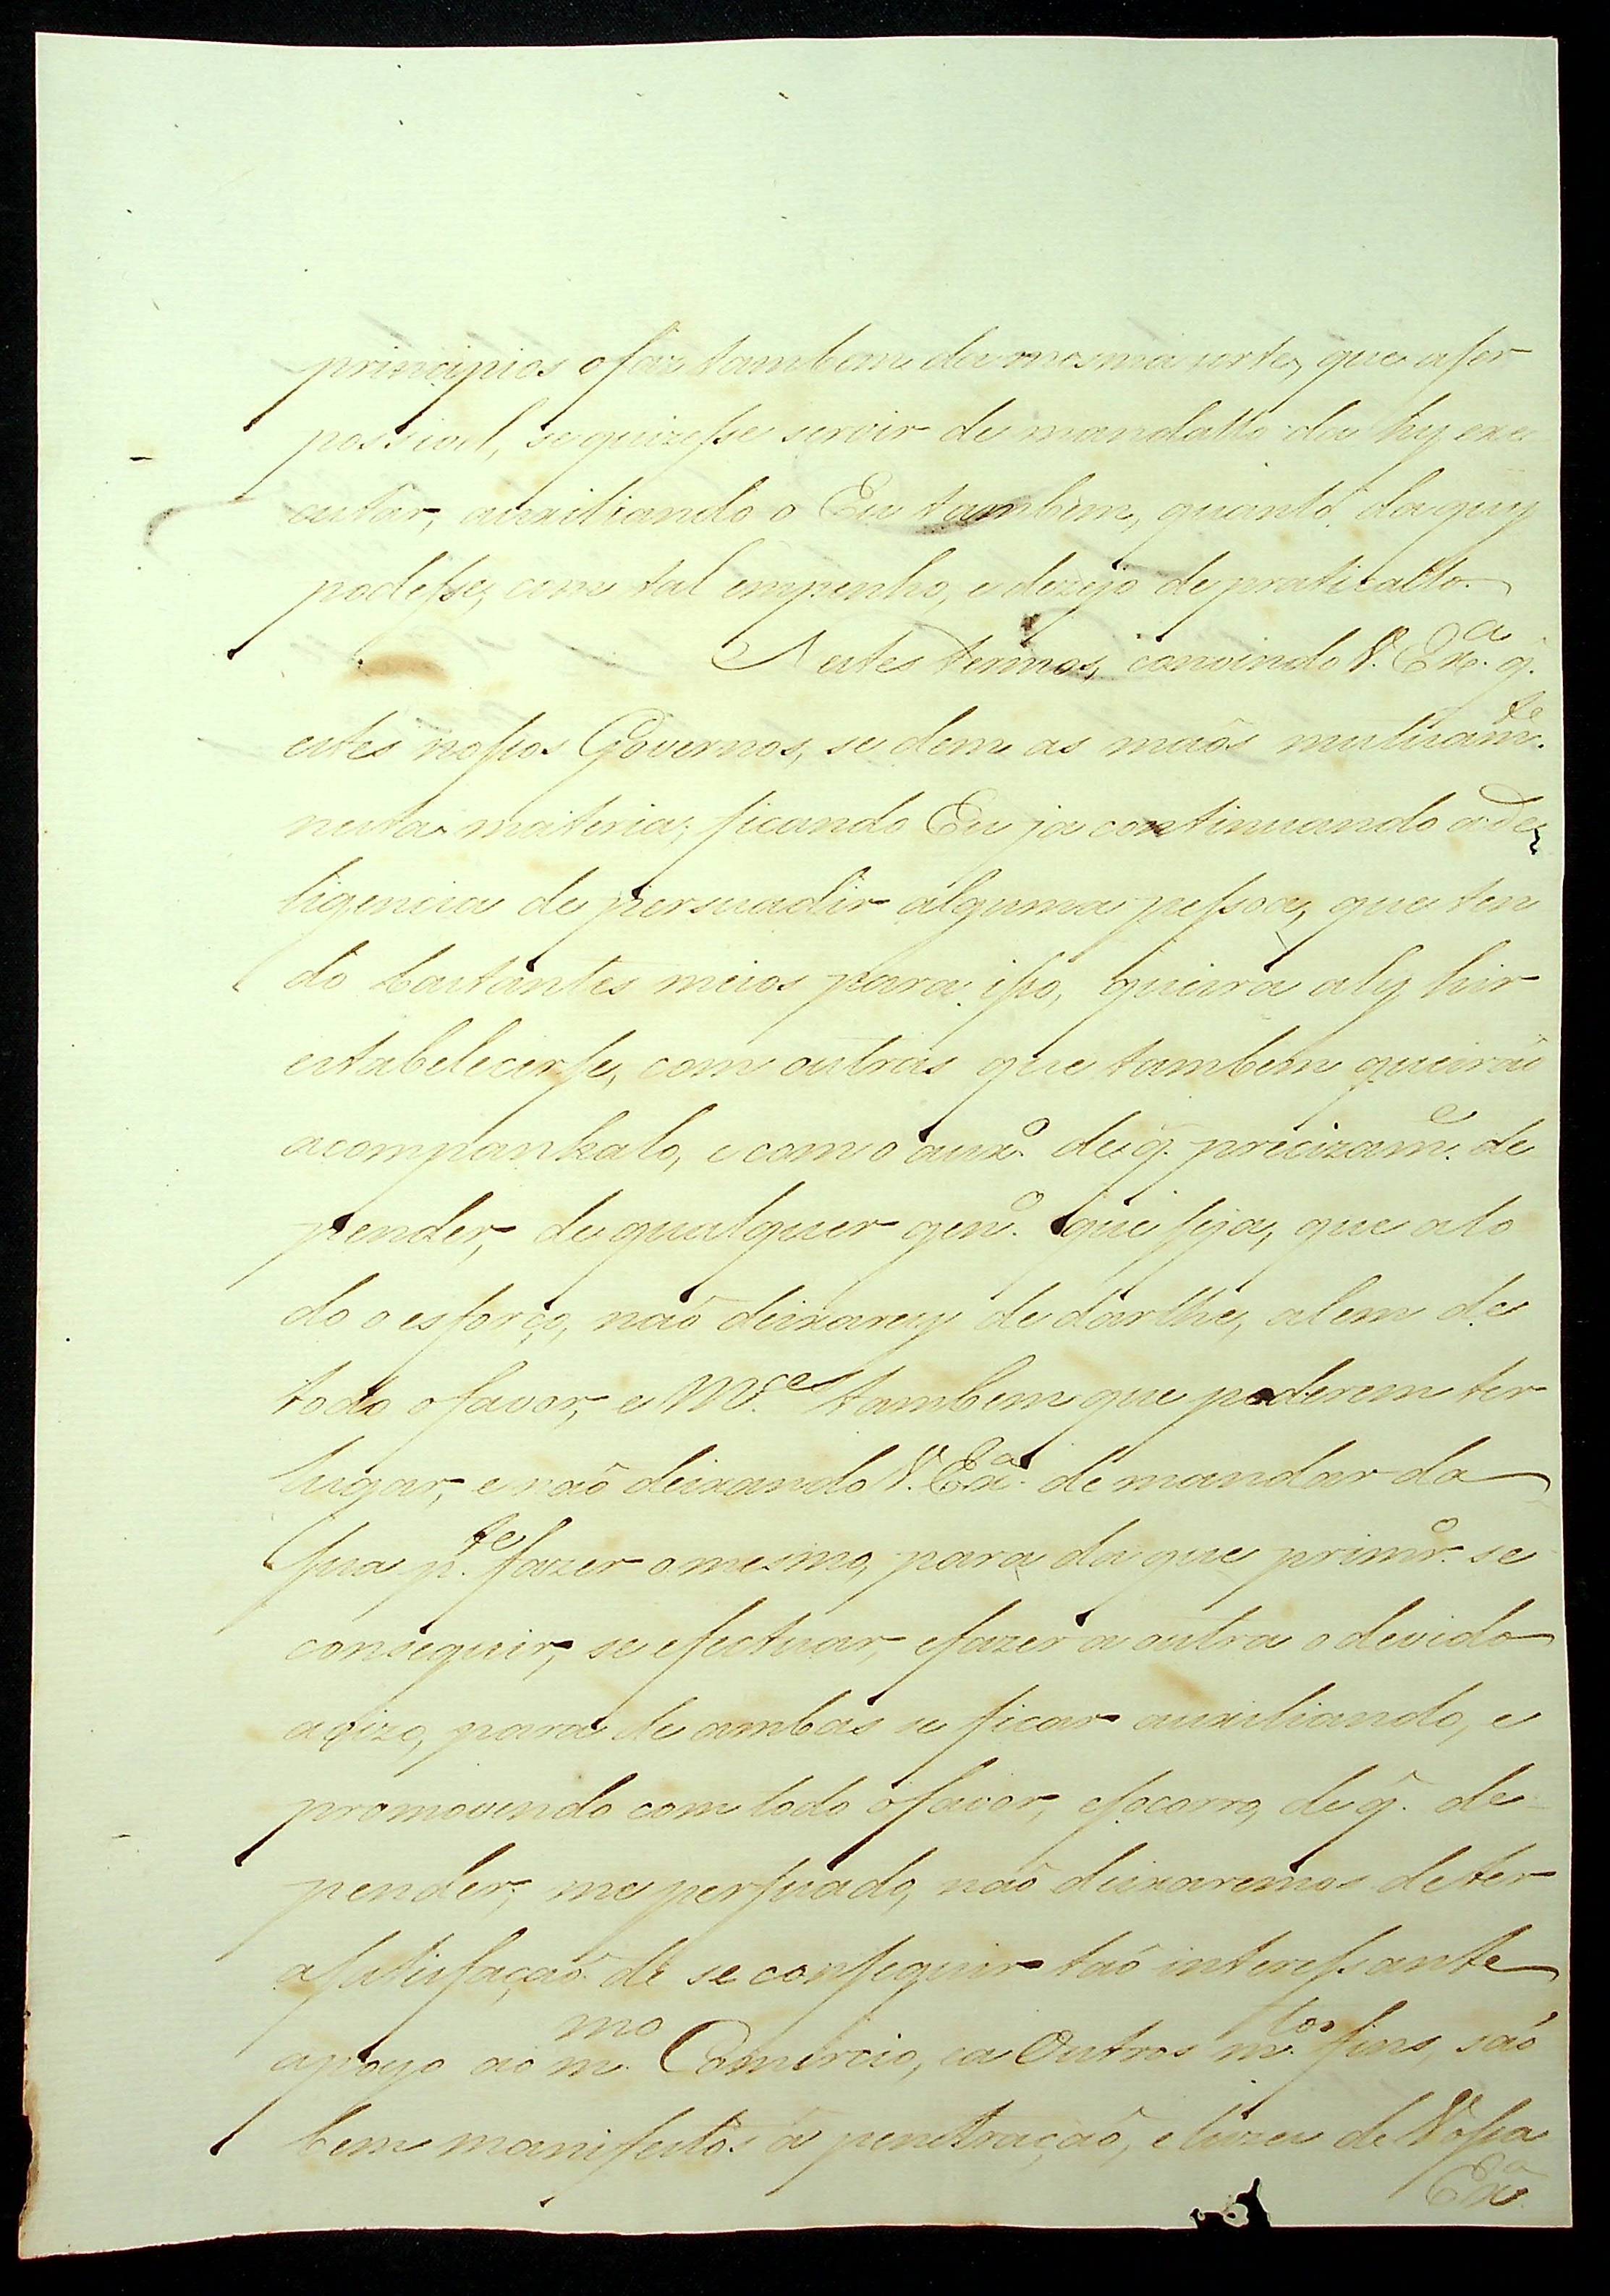 principios o faz tambem da mesma sorte, que a ser
possivel, se quizesse servir de mandallo da hy exe
cutar, auxiliando o Eu tambem, quanto daquy
podesse, com tal empenho, e dezejo de praticallo.
Nestes termos, convindo V. Exc.ª q.
estes nossos Governos, se dem as maõs mutuam.te
nesta materia; ficando Eu ja continuando a de
ligencia de persuadir alguma pessoa, que ten
do bastantes meios para isso, queira aly hir
estabelecerse, com outras que tambem queiraõ
acompanhalo, e com o aux.o de q. precizam.e de
pender, de qualquer gen.o que seja, que a to
do o esforço, naõ deixarey de darlhe, alem de
todo o favor, e M.ces tambem que poderem ter
lugar, e naõ deixando V. Ex.ª de mandar da
sua p.te fazer o mesmo, para da que primr.o se
conseguir, se efectuar, e fazer a outra o devido
avizo, para de ambas se ficar auxiliando, e
promovendo com todo o favor, e socorro, de q̃. de-
pender, me persuado, naõ deixaremos de ter
a satisfaçaõ de se conseguir taõ interessante
apoyo ao m.mo Comercio, e a Outros m.tos fins, saõ
bem manifestos à penetraçaõ, e luzes de Vossa
Exª